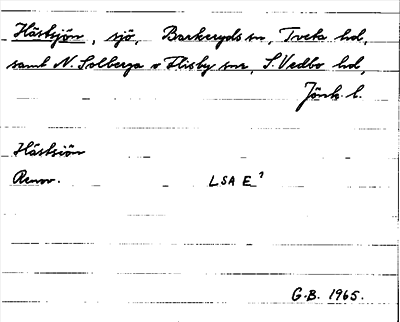 Hästsjön, sjö, Barkeryds sn, Tveta hd,
samt N. Solberga o Flisby snr, S. Vedbo hd,
Jönk. l.
Hästsiön
Renov. LSA E¹
G.B. 1965.